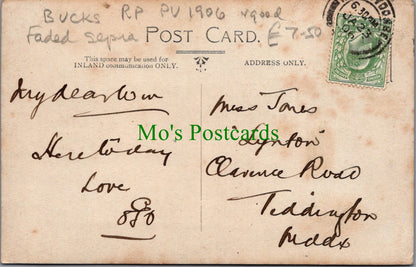 BUCKS RP PU 1906 v good
Faded Sepia £7-50
POST CARD.
This space may be used for
INLAND communication ONLY.
ADDRESS ONLY.
My dear Win
Here today
Love
Miss Jones
"Lynton"
Clarence Road
Teddington
Middx
Mo's Postcards
6.30 PM